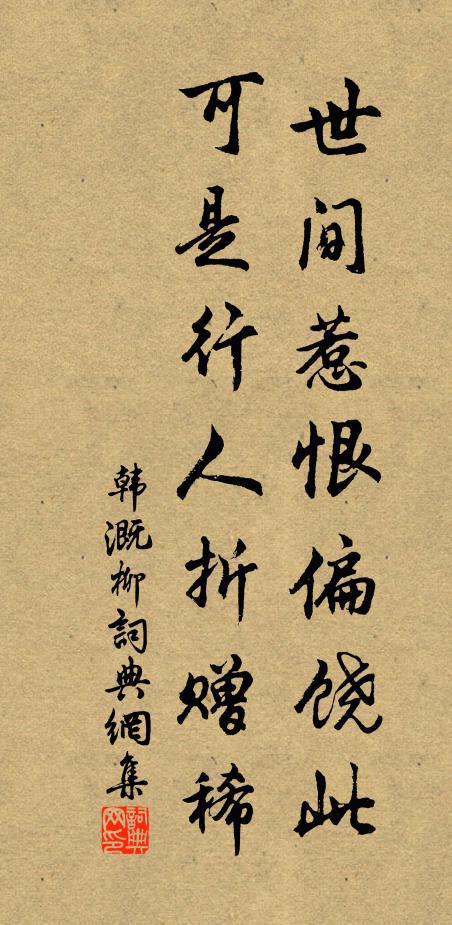 世间惹恨偏饶此
可是行人折赠稀
韩溉柳詞典網集
詞典网印